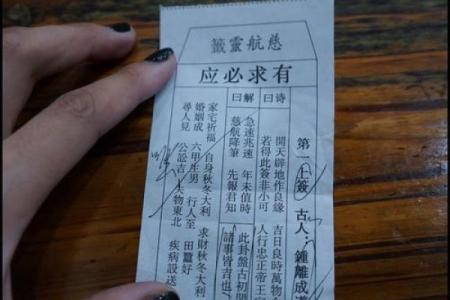 慈航靈籤
有求必应
第一上簽 古人：鍾離成道
诗曰
開天辟地作良緣 吉日良時萬物
若得此簽非小可 人行忠正帝王
解曰
急速兆速 年未值時
慈航降筆 先報君知
此卦盤古初開
諸事皆吉也
家宅祈福 自身秋冬大利 求財秋冬大利
婚姻成 六甲生男 行人至 田蠶好
尋人見 公訟吉 失物東北 疾病設送